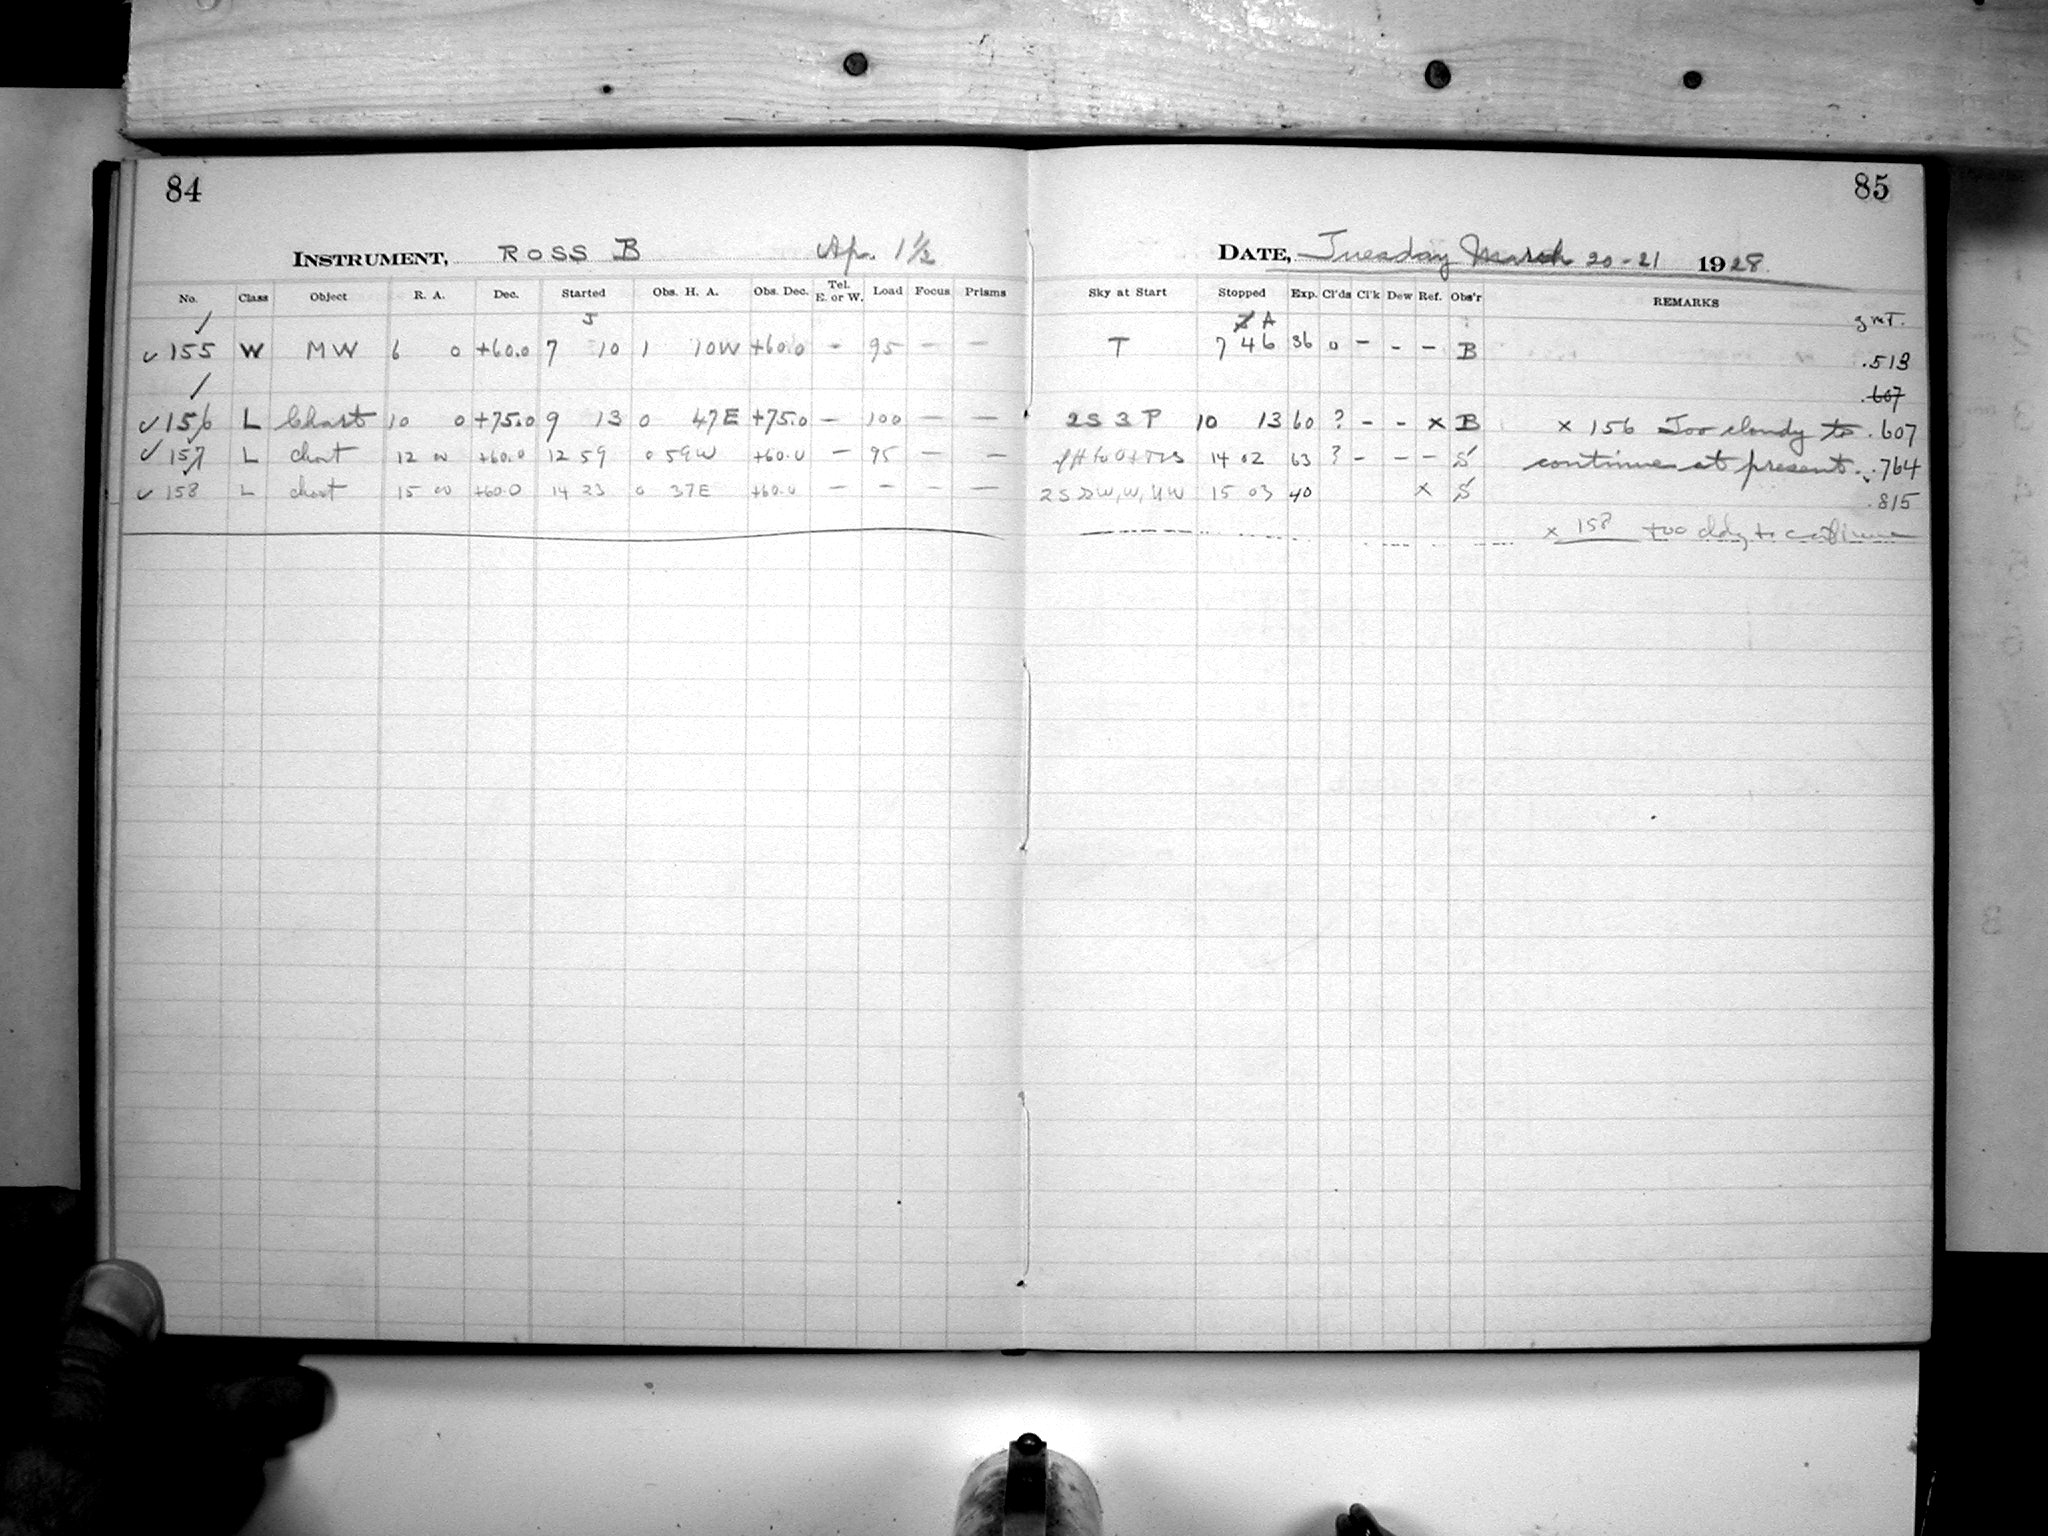 84
85
INSTRUMENT, ROSS B Ap. 1½
DATE, Tuesday March 20-21 1928
No. Class Object R. A. Dec. Started Obs. H. A. Obs. Dec. Tel. E. or W. Load Focus Prisms Sky at Start Stopped Exp. Cl'ds Cl'k Dew Ref. Obs'r REMARKS
J A GMT.
✓ 155 W MW 6 0 +60.0 7 10 1 10W +60.0 - 95 - - T 7 46 36 0 - - - B .513
.607
✓ 156 L Chart 10 0 +75.0 9 13 0 47E +75.0 - 100 - - 2S 3P 10 13 60 ? - - x B x 156 Too cloudy to .607
✓ 157 L chart 12 00 +60.0 12 59 0 59W +60.0 - 95 - - 14 02 63 ? - - - S continue at present. .764
✓ 158 L chart 15 00 +60.0 14 23 0 37E +60.0 - - - - 2S 15 03 40 x S .815
x 158 too cldy to continue